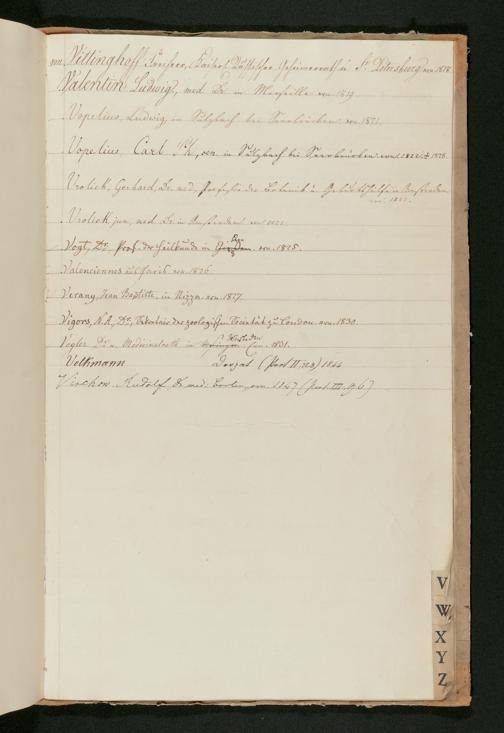 von Vittinghoff Freiherr, Kaiserl. Russischer Geheimerrath in St. Petersburg von 1818
Valentin Ludwig, med. Dr. in Marseille von 1819
Vopelius, Ludwig, in Sulzbach bei Saarbrücken von 1821.
Vopelius, Carl Ph., sen. in Sulzbach bei Saarbrücken von 1822.
Vrolick, Gerhard, Dr. med., Professor der Botanik u. Geburtshülfe in Amsterdam
von 1822.
Vrolick jun. med. Dr. in Amsterdam von 1822.
Vogt, Dr. Prof. der Heilkunde in von. 1825.
Valenciennes zu Paris von 1826
Verany, Jean Baptiste, in Nizza. von. 1827.
Vigors, N.A., Dr., Sekretair der zoologischen Societät zu London. von. 1830.
Vogler Dr. u. Medicinalrath in Wiesbaden 1831.
Voltkmann Dorpat (Prot. II. 1844
Virchow. Rudolf, Dr. med. Berlin, von 1847 (Prot. III. p. 6)
V
W
X
Y
Z